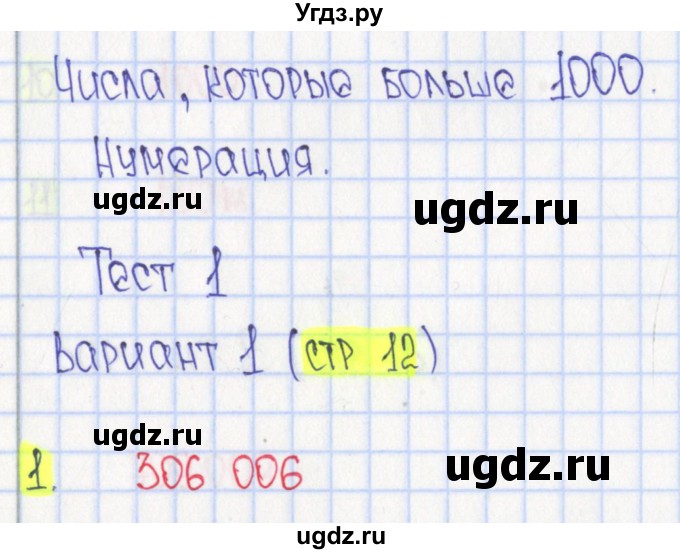 Угдз.ру
Числа, которые больше 1000.
Нумерация.
ugdz.ru
ugdz.ru
Тест 1
Вариант 1 (стр 12)
ugdz.ru
ugdz.ru
1. 306 006
ugdz.ru